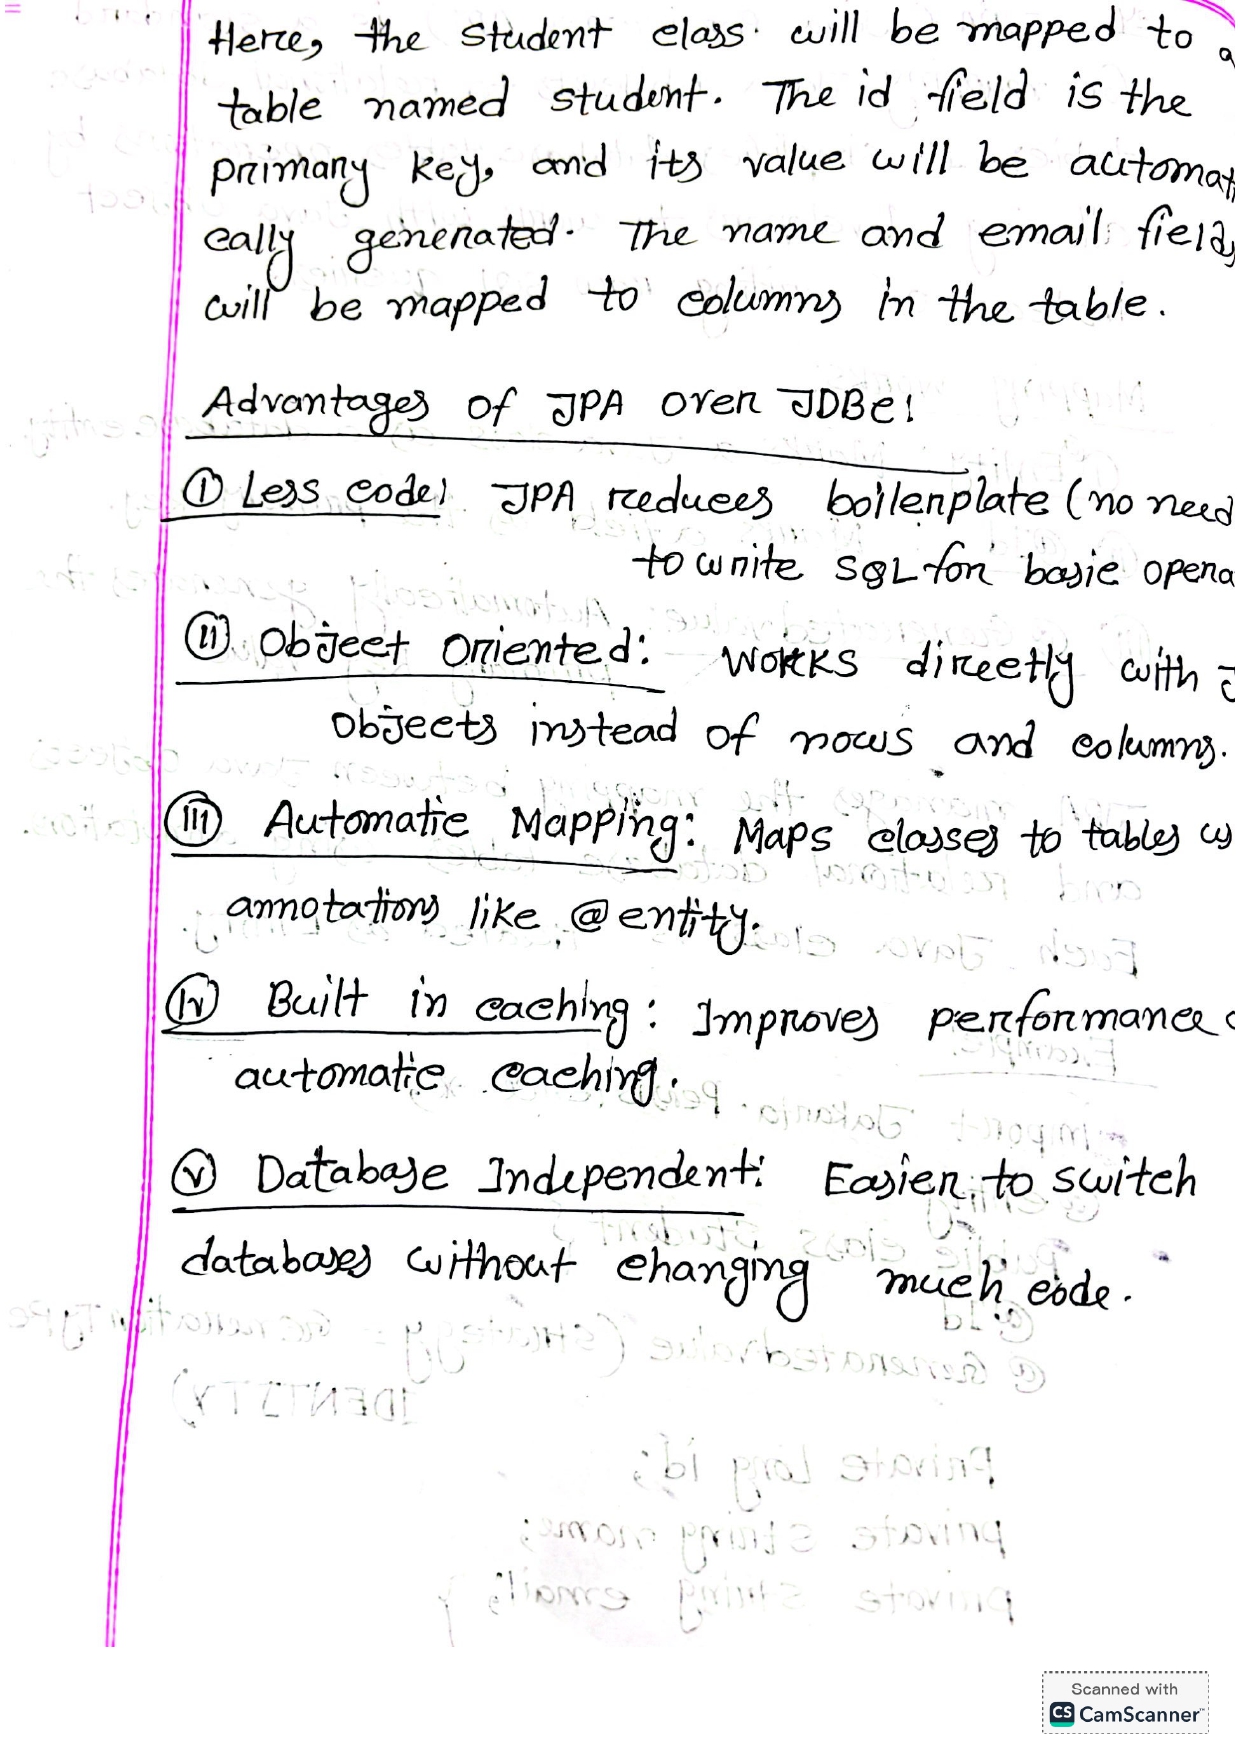 Here, the student class will be mapped to a
table named student. The id field is the
primary key, and its value will be automati
cally generated. The name and email fields
will be mapped to columns in the table.
Advantages of JPA over JDBC:
(i) Less code: JPA reduces boilerplate (no need
to write SQL for basic opera
(ii) Object Oriented: Works directly with J
Objects instead of rows and columns.
(iii) Automatic Mapping: Maps classes to tables us
annotations like @entity.
(iv) Built in caching: Improves performance
automatic caching.
(v) Database Independent: Easier to switch
databases without changing much code.
Scanned with
CS CamScanner